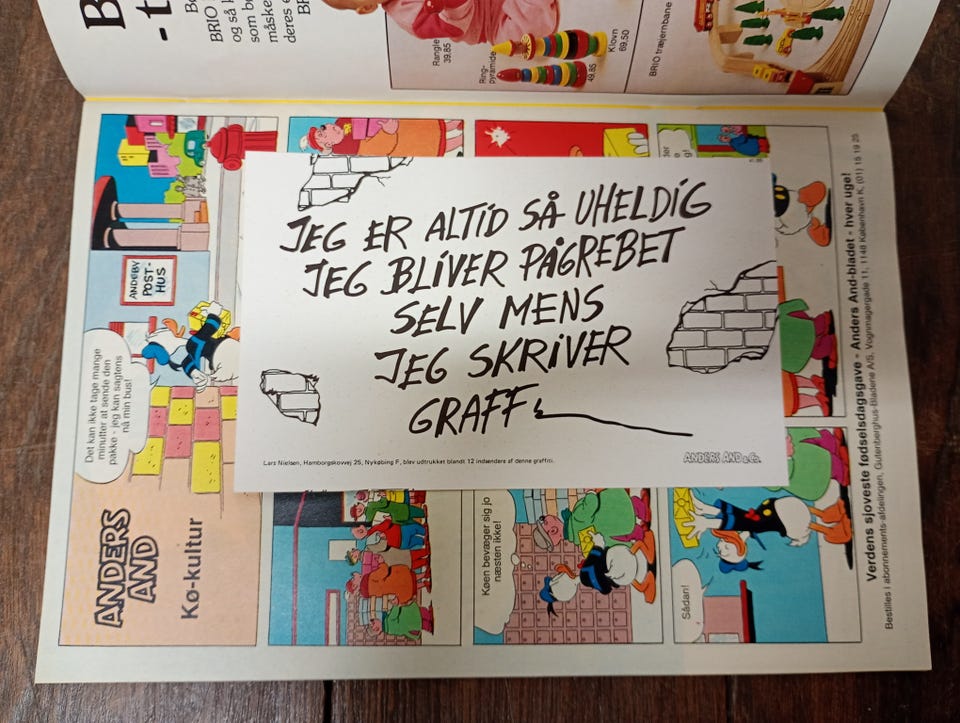 JEG ER ALTID SÅ UHELDIG
JEG BLIVER PÅGREBET
SELV MENS
JEG SKRIVER
GRAFF
Lars Nielsen, Hamborgskovvej 25, Nykøbing F, blev udtrukket blandt 12 indsendere af denne graffiti.
ANDERS AND & Co.
ANDERS
AND
Ko-kultur
Det kan ikke tage mange
minutter at sende den
pakke - jeg kan sagtens
nå min bus!
ANDEBY
POST-
HUS
Køen bevæger sig jo
næsten ikke!
Sådan!
Verdens sjoveste fødselsdagsgave - Anders And-bladet - hver uge!
Bestilles i abonnements-afdelingen, Gutenberghus-Bladene A/S, Vognmagergade 11, 1148 København K, (01) 15 19 25
B
- t
BRIO
og så
som be
måske
deres e
Rangle
39.85
Ring-
pyramide
49.85
Klovn
69.50
BRIO træjernbane